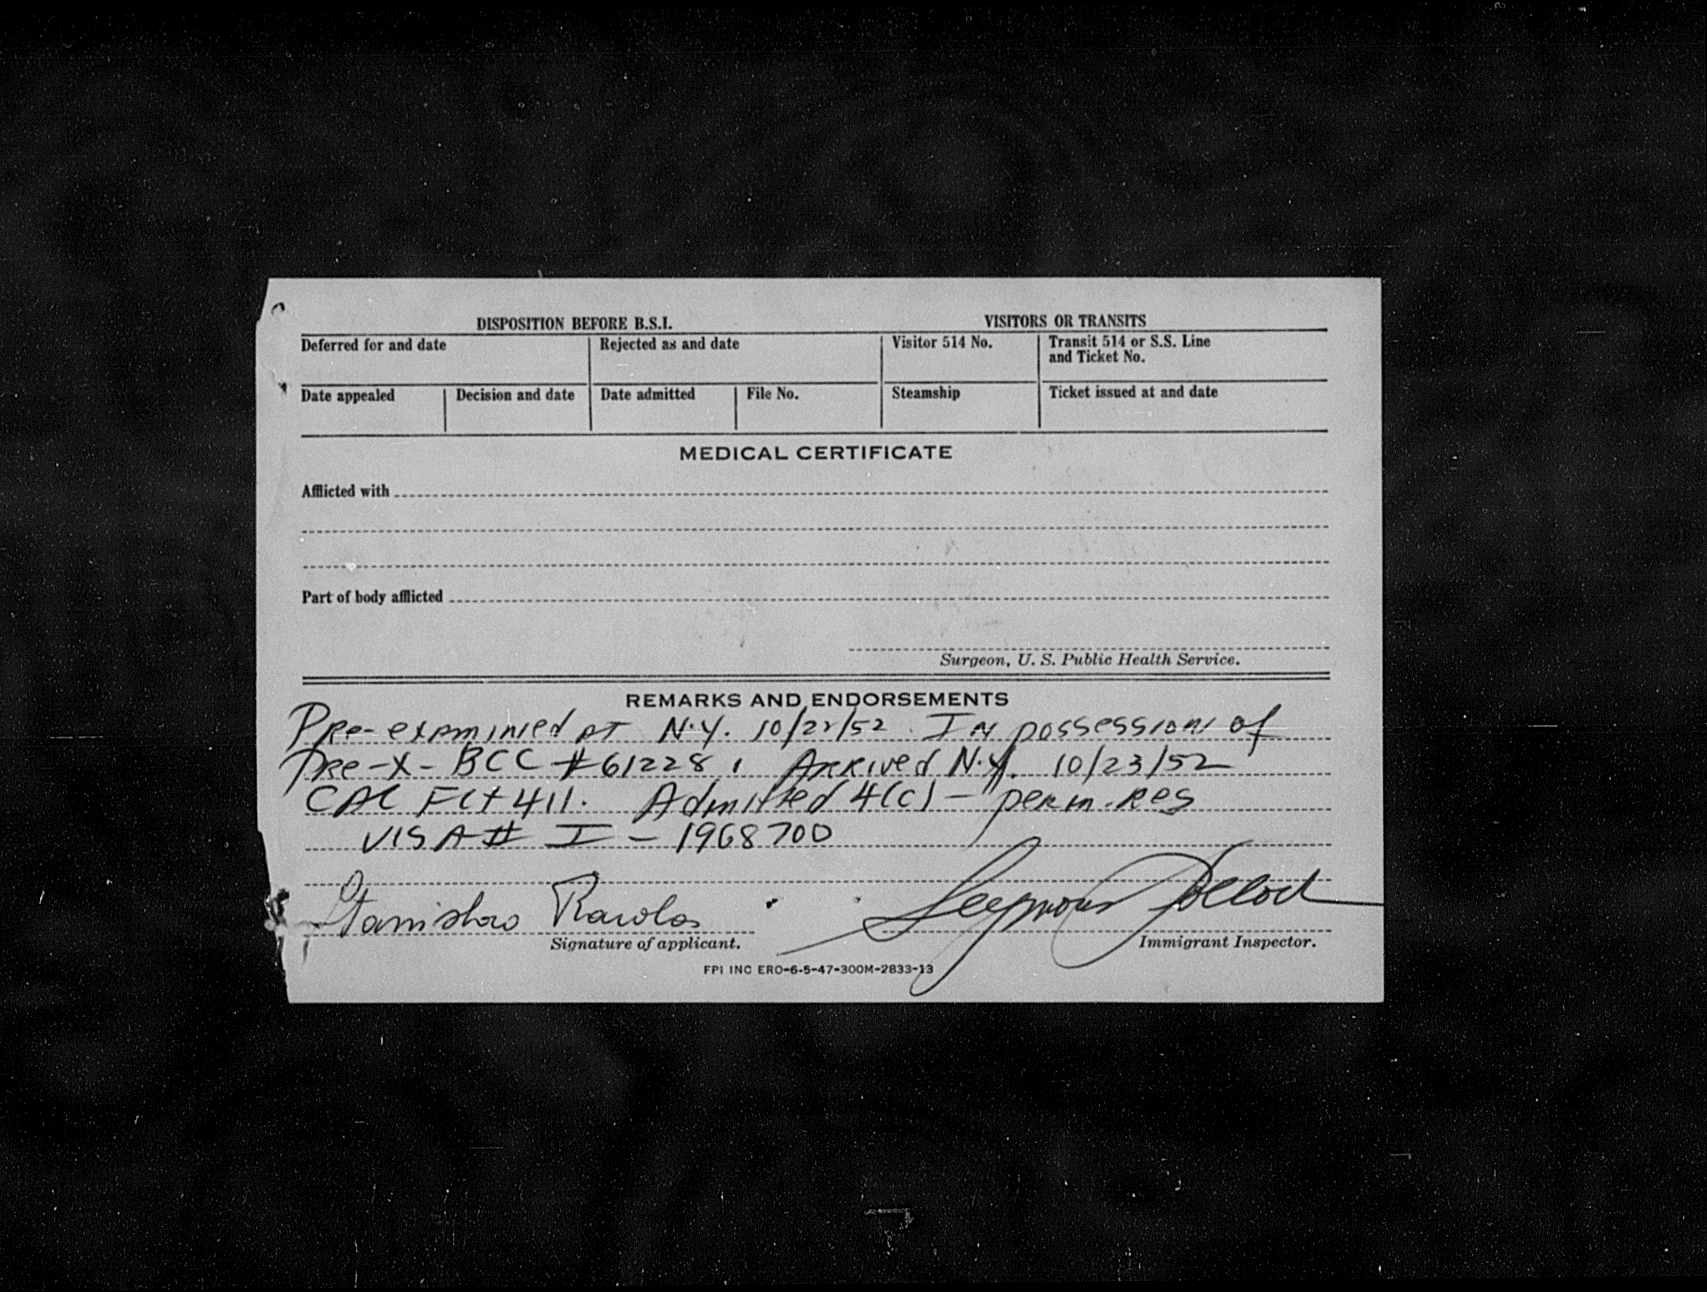 DISPOSITION BEFORE B.S.I. VISITORS OR TRANSITS
Deferred for and date Rejected as and date Visitor 514 No. Transit 514 or S.S. Line
and Ticket No.
Date appealed Decision and date Date admitted File No. Steamship Ticket issued at and date
MEDICAL CERTIFICATE
Afflicted with
Part of body afflicted
Surgeon, U. S. Public Health Service.
REMARKS AND ENDORSEMENTS
Pre-examined at N.Y. 10/22/52 In possession of
Pre-X-BCC #61228. Arrived N.Y. 10/23/52
Flt 411. Admitted 4(c) - perm. Res
VISA # I - 1968700
Stanislaw Seymour
Signature of applicant. Immigrant Inspector.
FPI INC ERO-6-5-47-300M-2833-13